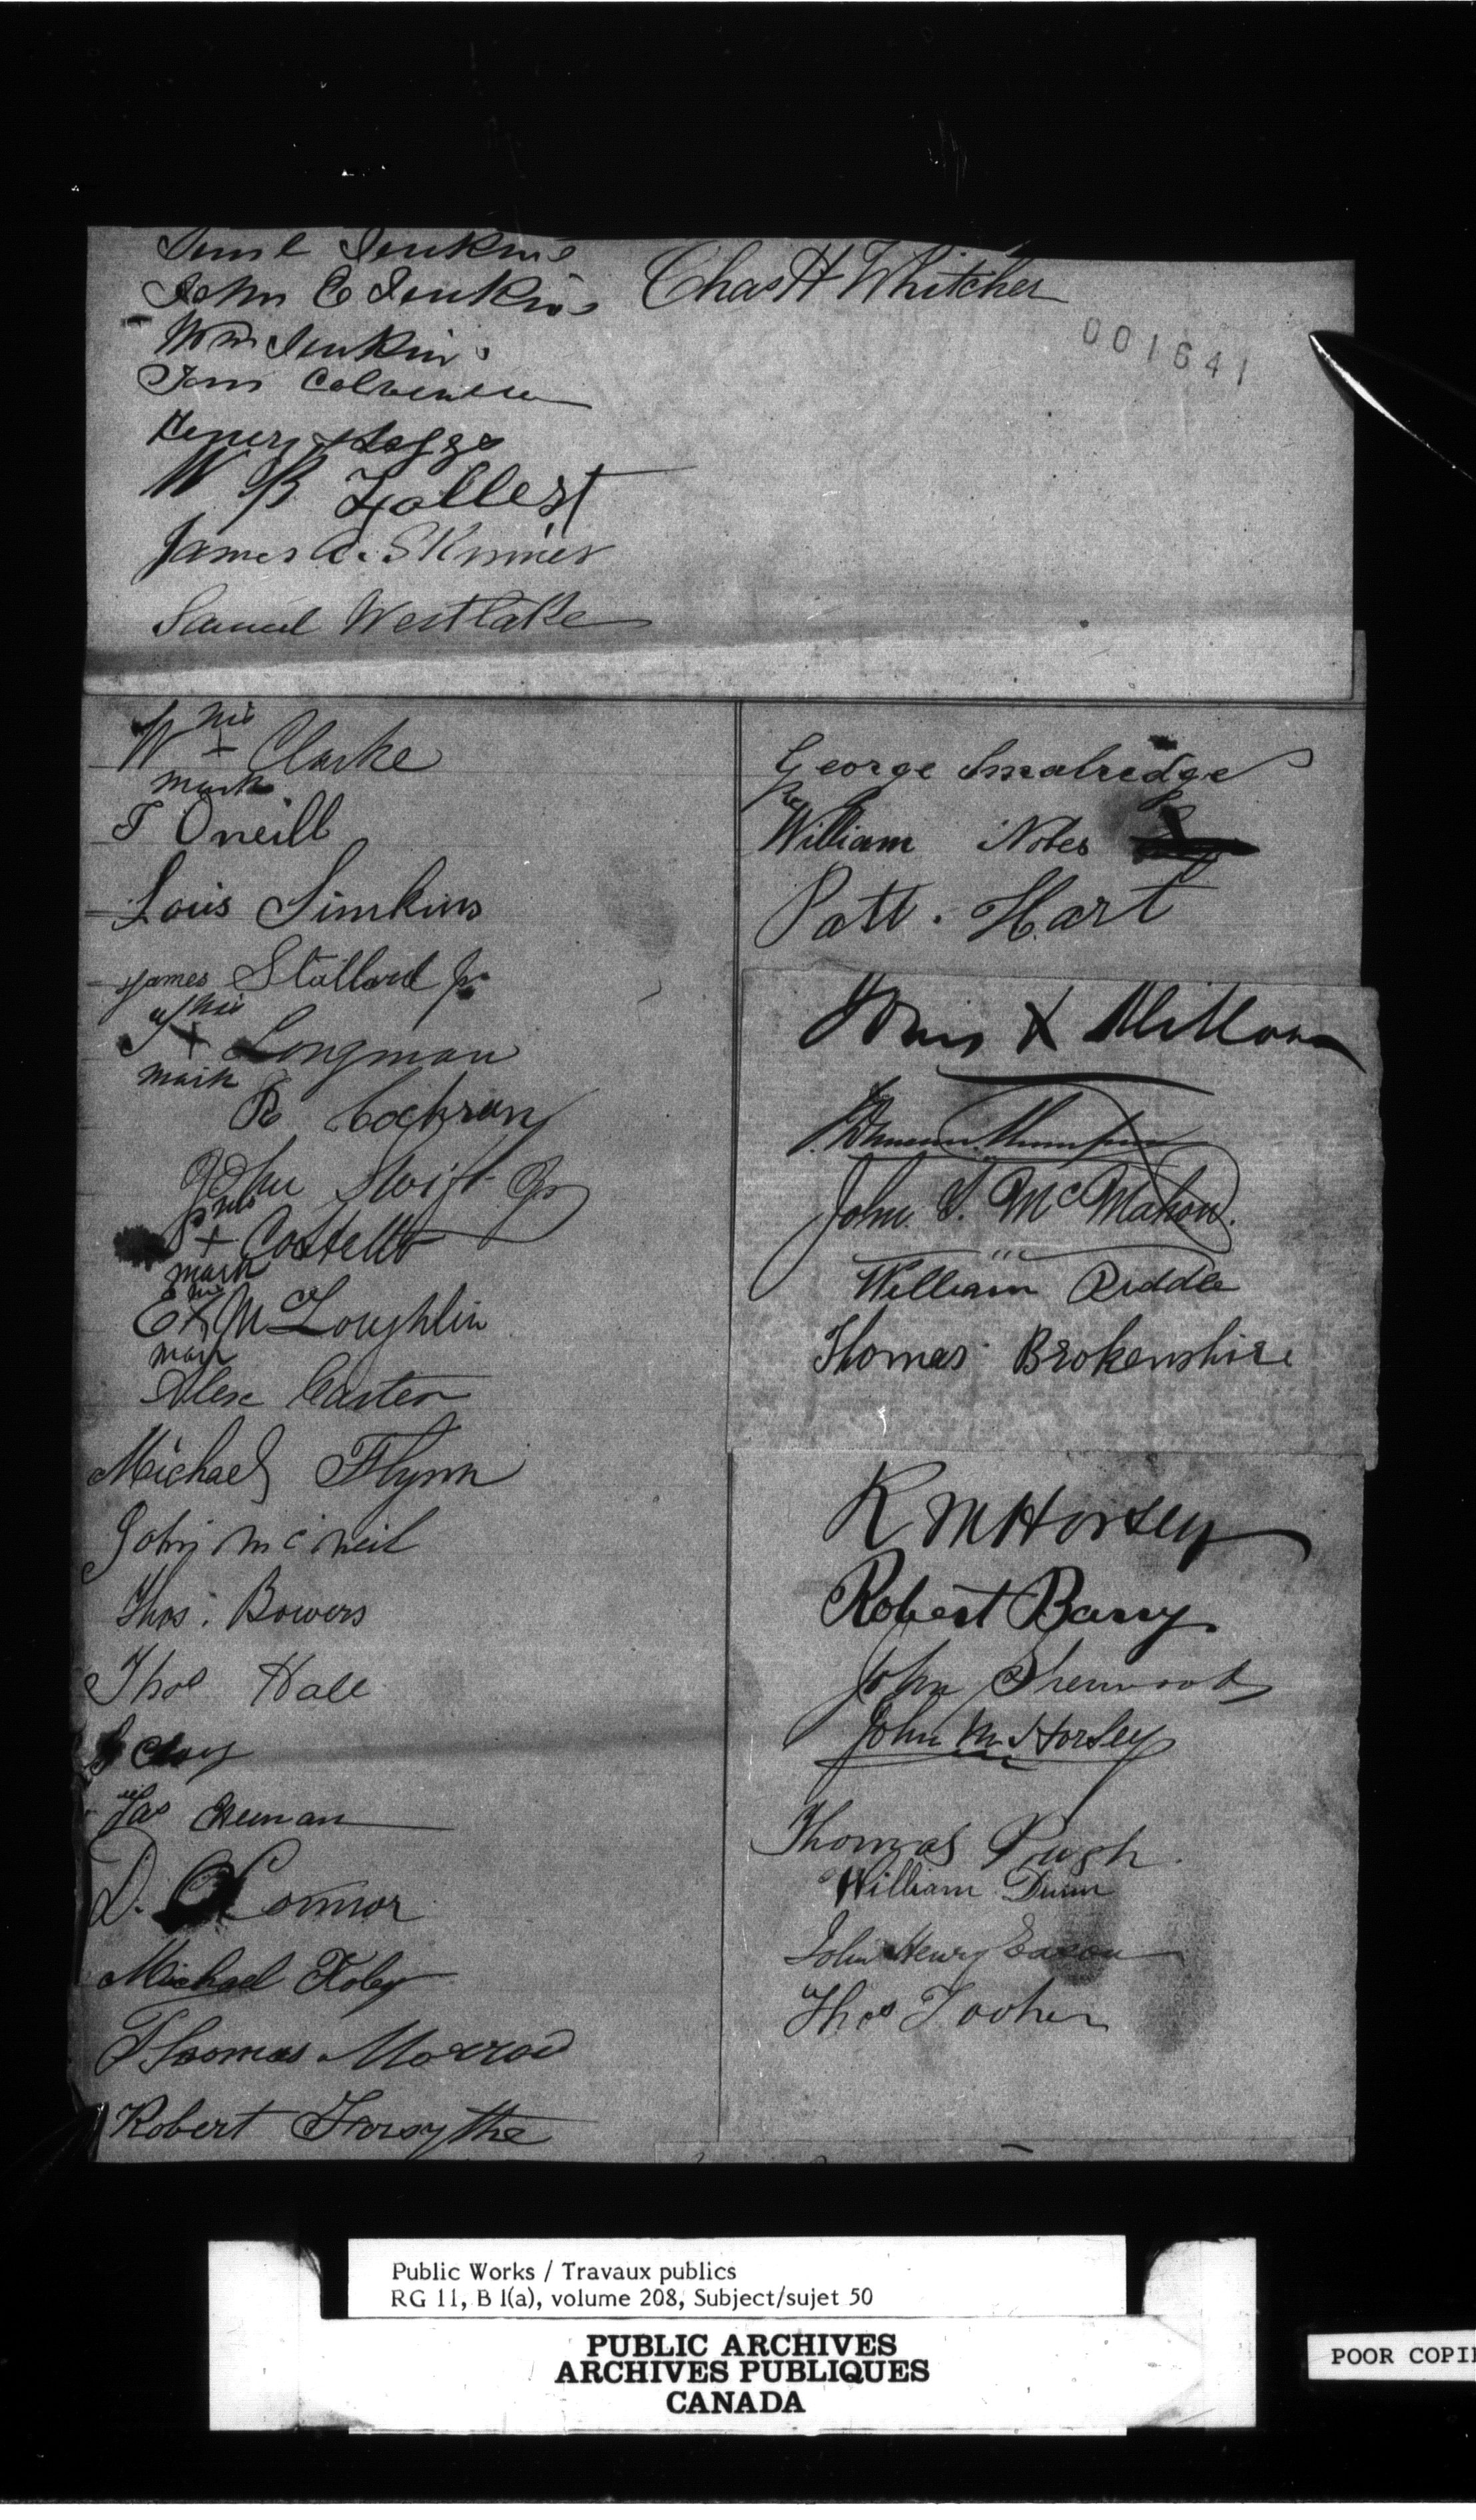 Jenkins
John E Jenkins
Chas H Whitcher
001641
Wm Jenkins
Henry Hoggs
W B
James A. Skinner
Samuel Westlake
his
W + Clarke
mark
T Oneill
Louis Simkins
James Stallard Jr
his
T + Longman
mark
R Cochran
John Swift Jr
his
P + Costello
mark
his
E + McLoughlin
mark
Alex Carter
Michael Flynn
John mcneil
Thos. Bowers
Thos Hall
Clay
Jas
D. O'Connor
Michael
Thomas Morrow
Robert Forsythe
George Smalridge
William Notes
Patt. Hart
X
John S. McMahon.
William Riddle
Thomas Brokenshire
R M Horsey
Robert Barry
John Sherwood
John M. Horsey
Thomas Pugh.
William Dunn
John Henry Eason
Thos Tooher
Public Works / Travaux publics
RG 11, B 1(a), volume 208, Subject/sujet 50
PUBLIC ARCHIVES
ARCHIVES PUBLIQUES
CANADA
POOR COPI